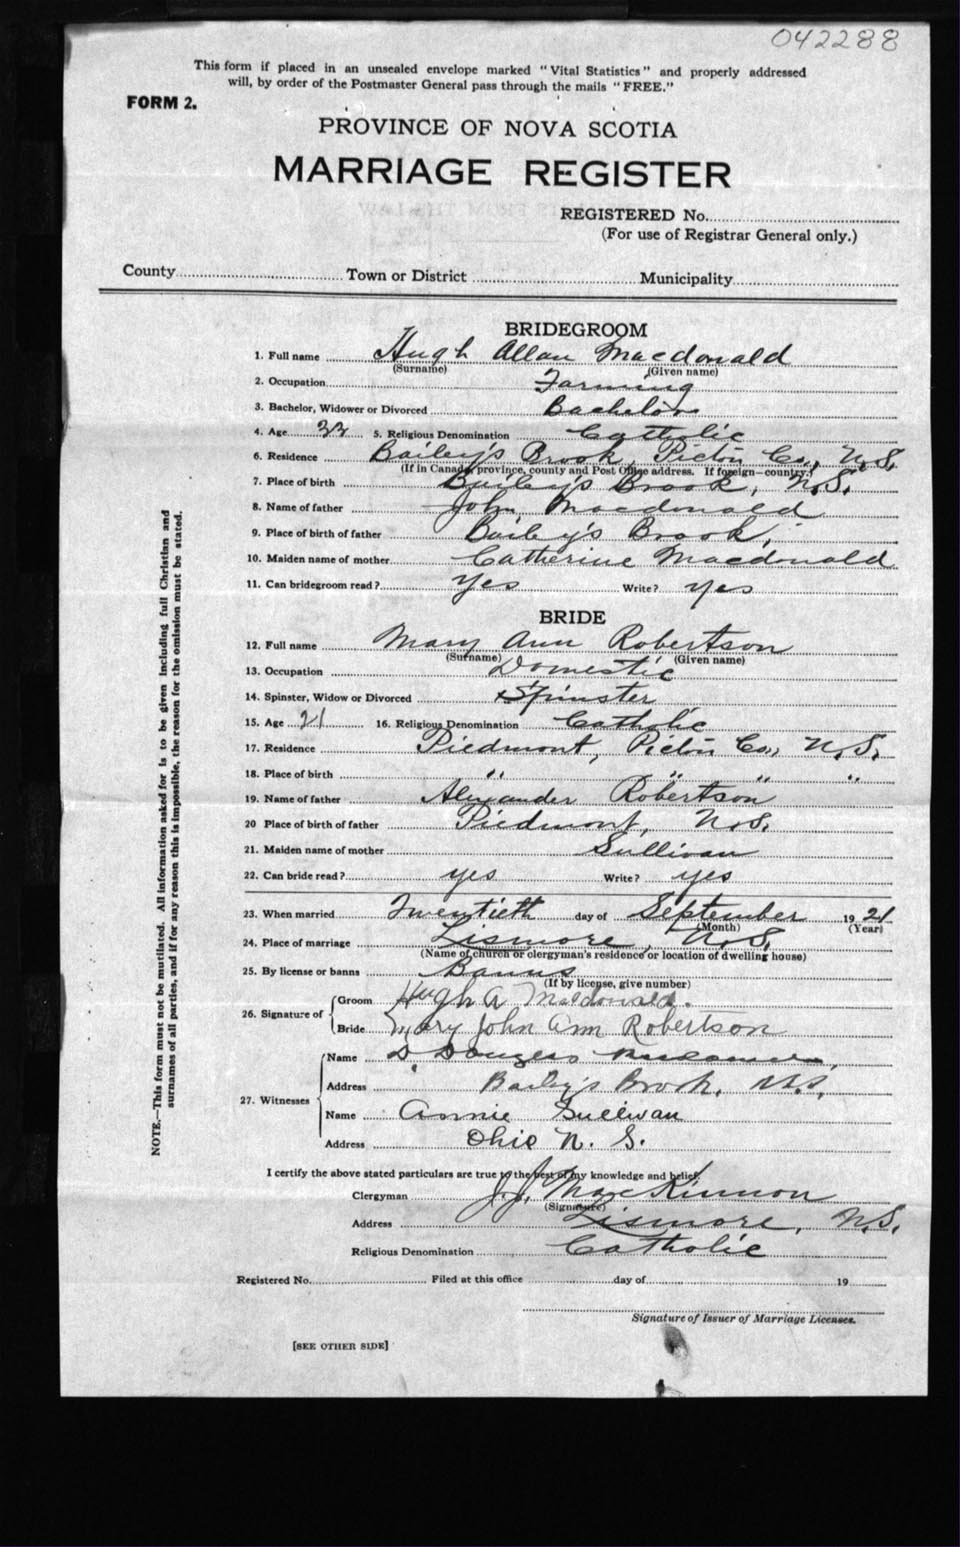 042288
This form if placed in an unsealed envelope marked "Vital Statistics" and properly addressed
will, by order of the Postmaster General pass through the mails "FREE."
FORM 2.
PROVINCE OF NOVA SCOTIA
MARRIAGE REGISTER
REGISTERED No.
(For use of Registrar General only.)
County Town or District Municipality
BRIDEGROOM
1. Full name Hugh Allan Macdonald
(Surname) (Given name)
2. Occupation Farming
3. Bachelor, Widower or Divorced Bachelor
4. Age 33 5. Religious Denomination Catholic
6. Residence Bailey's Brook, Pictou Co., N.S.
(If in Canada province, county and Post Office address. If foreign—country.)
7. Place of birth Bailey's Brook, N.S.
8. Name of father John Macdonald
9. Place of birth of father Bailey's Brook,
10. Maiden name of mother Catherine Macdonald
11. Can bridegroom read? Yes Write? yes
BRIDE
12. Full name Mary Ann Robertson
(Surname) (Given name)
13. Occupation Domestic
14. Spinster, Widow or Divorced Spinster
15. Age 21 16. Religious Denomination Catholic
17. Residence Piedmont, Pictou Co., N.S.
18. Place of birth " " " "
19. Name of father Alexander Robertson
20 Place of birth of father Piedmont, N.S.
21. Maiden name of mother Sullivan
22. Can bride read? yes Write? yes
23. When married Twentieth day of September 1921
(Month) (Year)
24. Place of marriage Lismore, N.S.
(Name of church or clergyman's residence or location of dwelling house)
25. By license or banns Banns
(If by license, give number)
26. Signature of Groom Hugh A Macdonald.
Bride Mary John Ann Robertson
27. Witnesses Name D Douglas
Address Bailey's Brook, N.S.
Name Annie Sullivan
Address Ohio N. S.
I certify the above stated particulars are true to the best of my knowledge and belief.
Clergyman J.J. MacKinnon
(Signature)
Address Lismore, N.S.
Religious Denomination Catholic
Registered No. Filed at this office day of 19
Signature of Issuer of Marriage Licenses.
[SEE OTHER SIDE]
NOTE.—This form must not be mutilated. All information asked for is to be given including full Christian and
surnames of all parties, and if for any reason this is impossible, the reason for the omission must be stated.